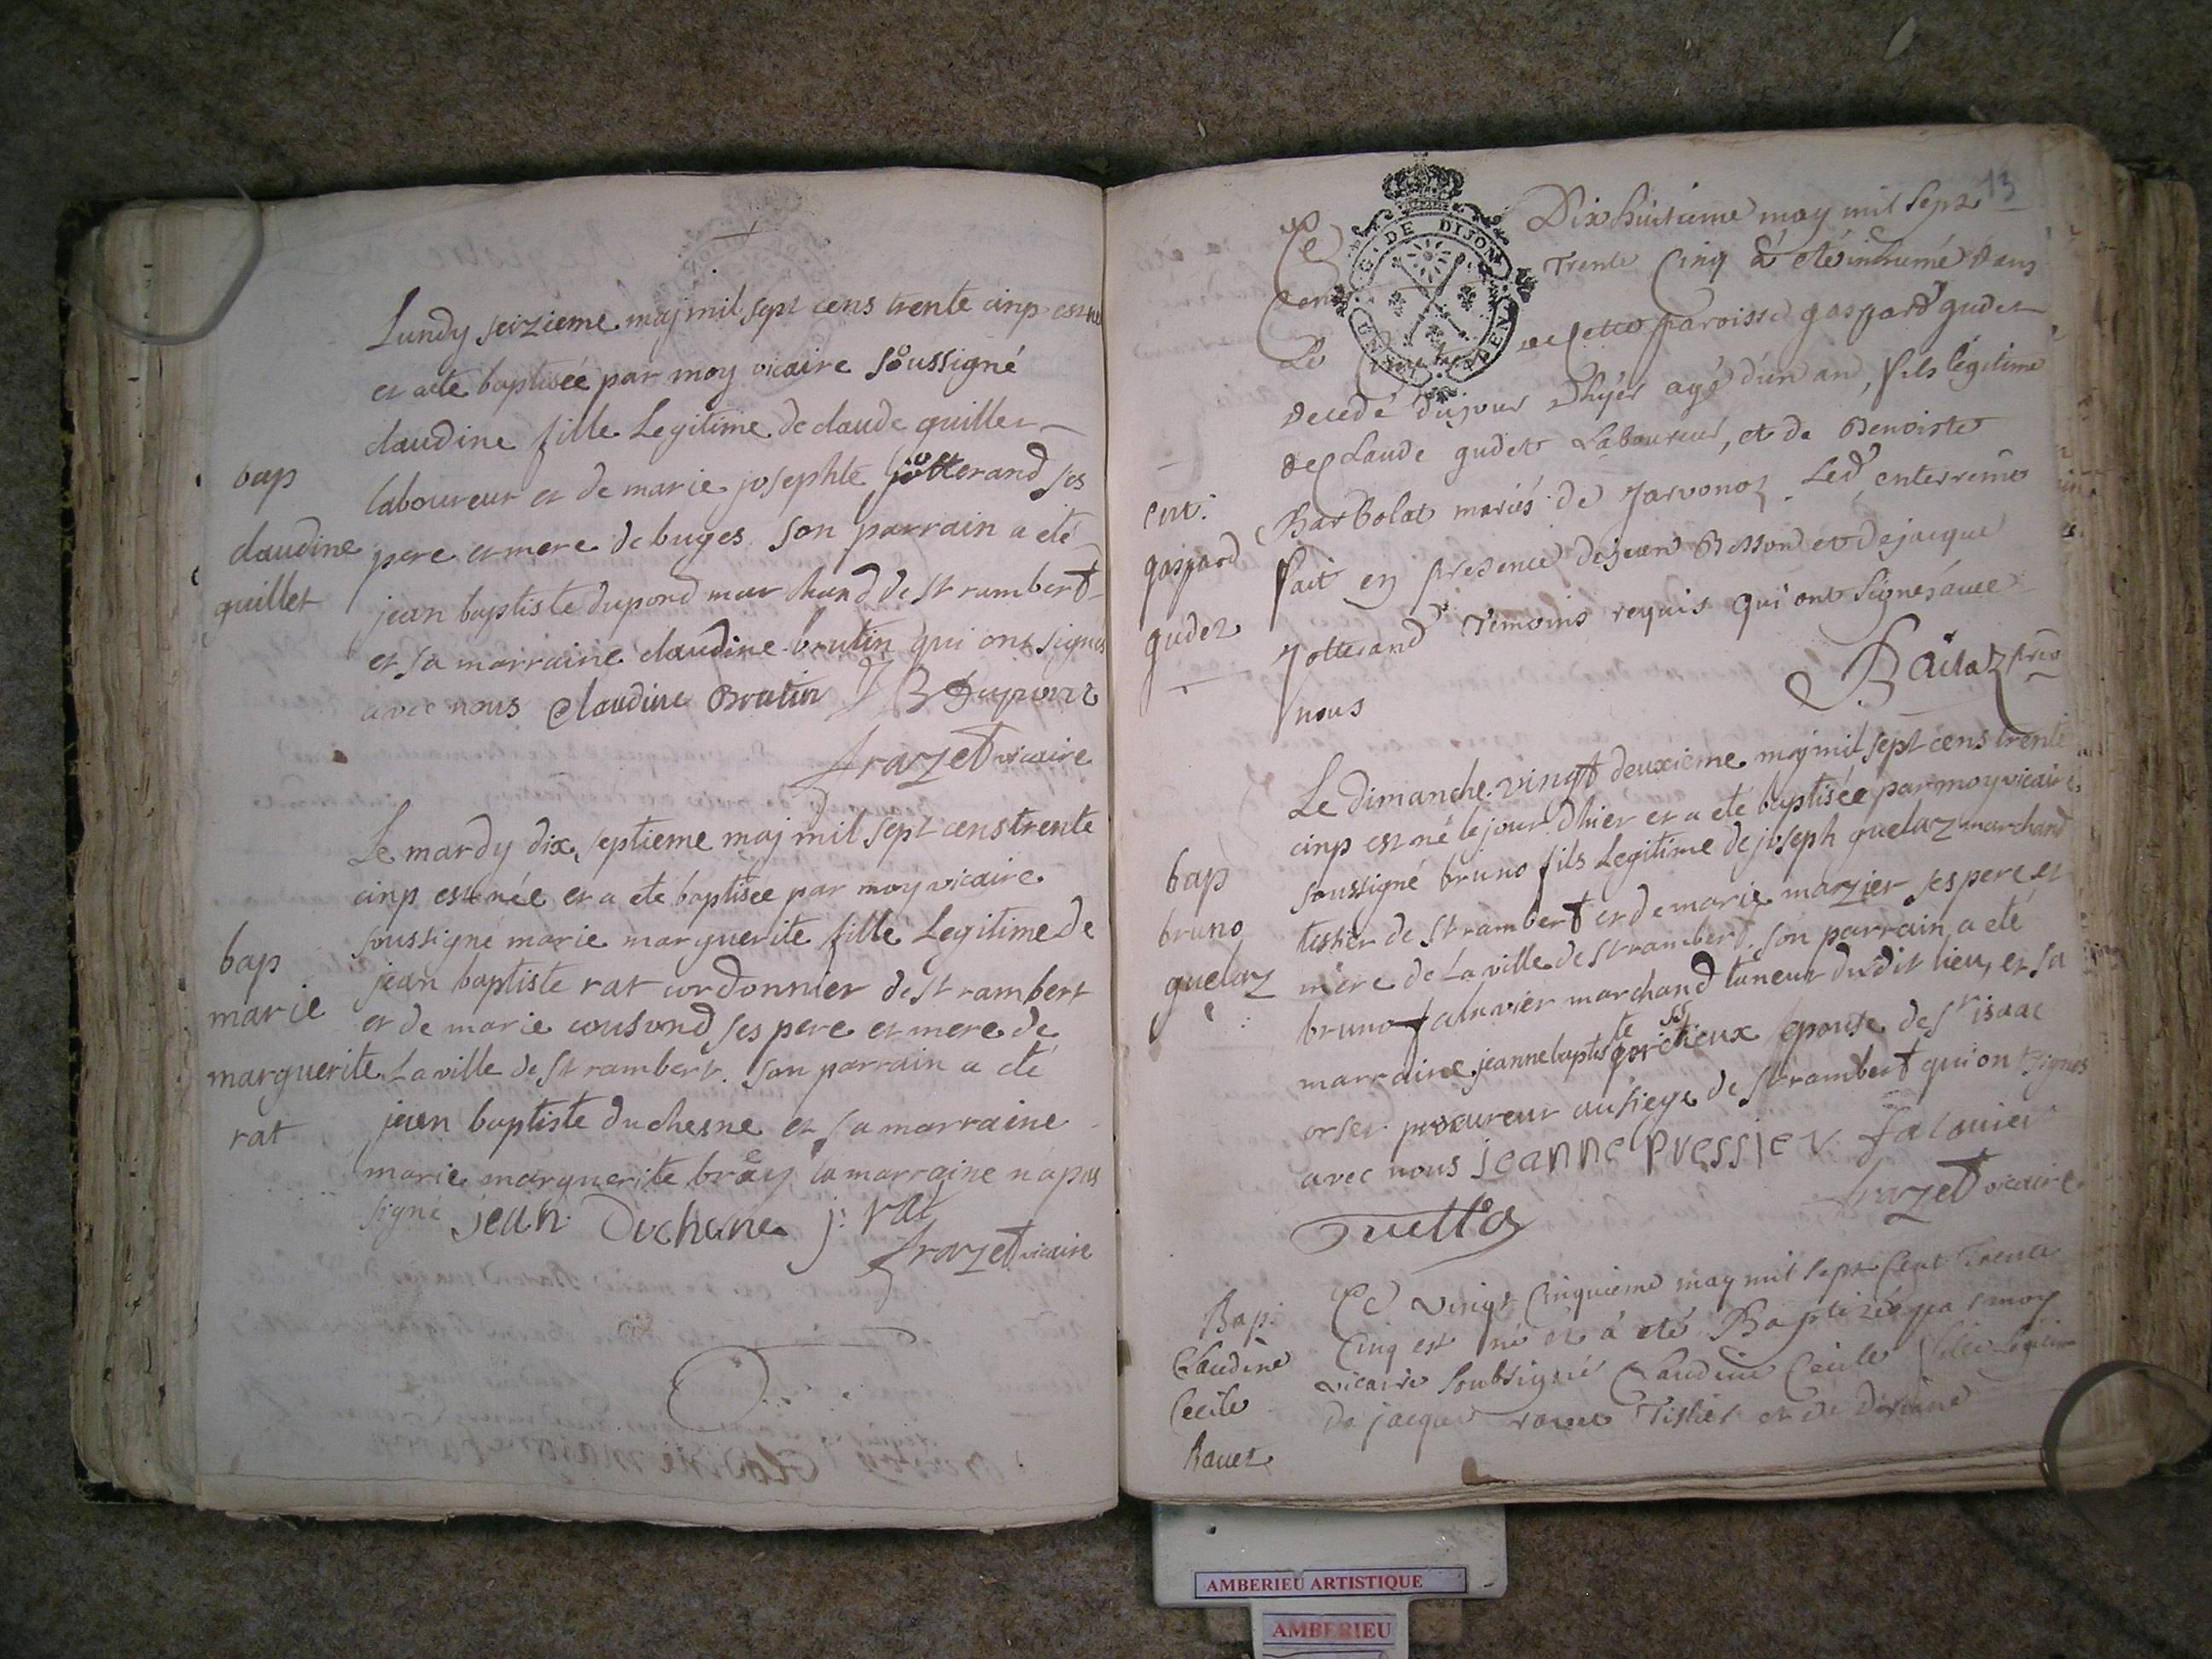 Lundy seizieme maj mil sept cens trente cinp est né
et a ete baptisée par moy vicaire soussigné
claudine fille Legitime de claude guillet
laboureur et de marie josephte jotterand ses
bap
claudine
guillet
pere et mere de buges son parrain a eté
jean baptiste dupond marchand de st rambert
et sa marraine claudine brutin qui ont signés
avec nous Claudine Brutin J B Dupont
frazet vicaire
Le mardy dix septieme maj mil sept cens trente
cinp est née et a ete baptisée par moy vicaire
soussigné marie marguerite fille Legitime de
bap
marie
marguerite
rat
jean baptiste rat cordonnier de st rambert
et de marie cousond ses pere et mere de
La ville de st rambert. son parrain a eté
jean baptiste duchesne et sa marraine
marie marguerite bray la marraine n'a pas
signé jean Duchene j. rat
frazet vicaire
13
Ce Dix huitieme may mil sept
G. DE DIJON
Cent Trente Cinq a été inhumé dans
Le Cimetiere de cette paroisse gaspard gudet
decedé du jour d'hyer agé d'un an, fils légitime
de Claude gudet Laboureur, et de Benoiste
ent:
gaspard
gudet
Barbolat mariés de Javonoz. Led enterremt
fait en presence de jean Besson et de jacque
Jotterand Temoins requis qui ont signés avec
nous
Bailaz
Le dimanche vingt deuxieme maj mil sept cens trente
cinp est né le jour d'hier et a eté baptisée par moy vicaire
soussigné bruno fils Legitime de joseph guelaz marchand
bap
bruno
guelaz
tissier de st rambert et de marie marzier ses pere et
mere de La ville de st rambert. son parrain a eté
bruno falavier marchand taneur du dit lieu, et sa
marraine jeanne baptiste epouse de sr isaac
orset procureur au siege de st rambert qui ont signés
avec nous jeanne pressieu falavier
frazet vicaire
Bap:
Claudine
Cecile
Ravet
Ce vingt Cinquieme may mil sept Cent Trente
Cinq est né et a eté Baptizée par moy
vicaire soubsigné Claudine Cecile fille Legitime
de jacques ravet Tissier et de
AMBERIEU ARTISTIQUE
AMBERIEU